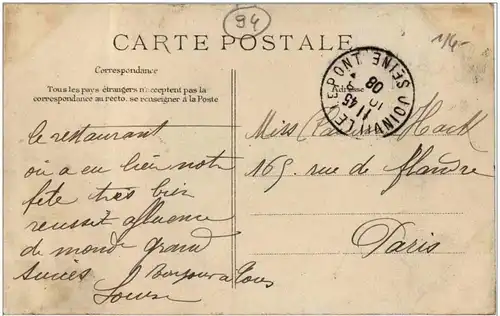 94
1/4-
CARTE POSTALE
Correspondance
Tous les pays étrangers n'acceptent pas la
correspondance au recto. se renseigner à la Poste
Adresse
JOINVILLE LE PONT SEINE
11 45
10
08
le restaurant
où a eu lieu notre
fête très bien
reussit affluence
de monde grand
succès Bonjour a tous
Louise
Miss Hack
169. rue de flandre
Paris